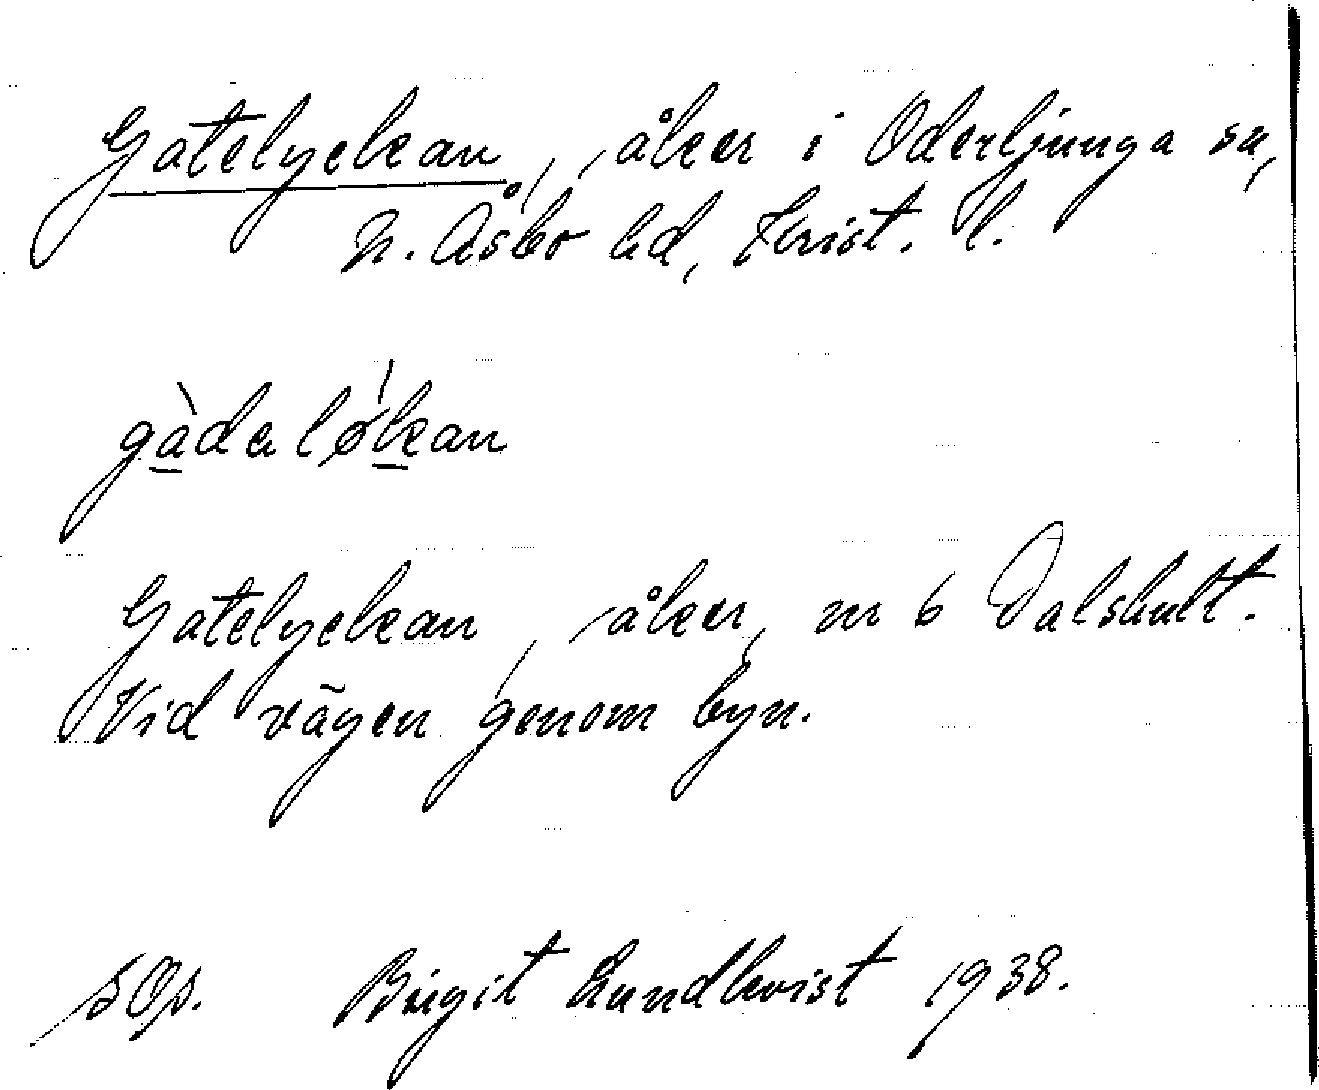 Gatelyckan, åker i Oderljunga sn,
N. Åsbo hd, Krist. l.
gàdaløkan
Gatelyckan, åker, nr 6 Dalshult.
Vid vägen genom byn.
SOp. Birgit Lundkvist 1938.